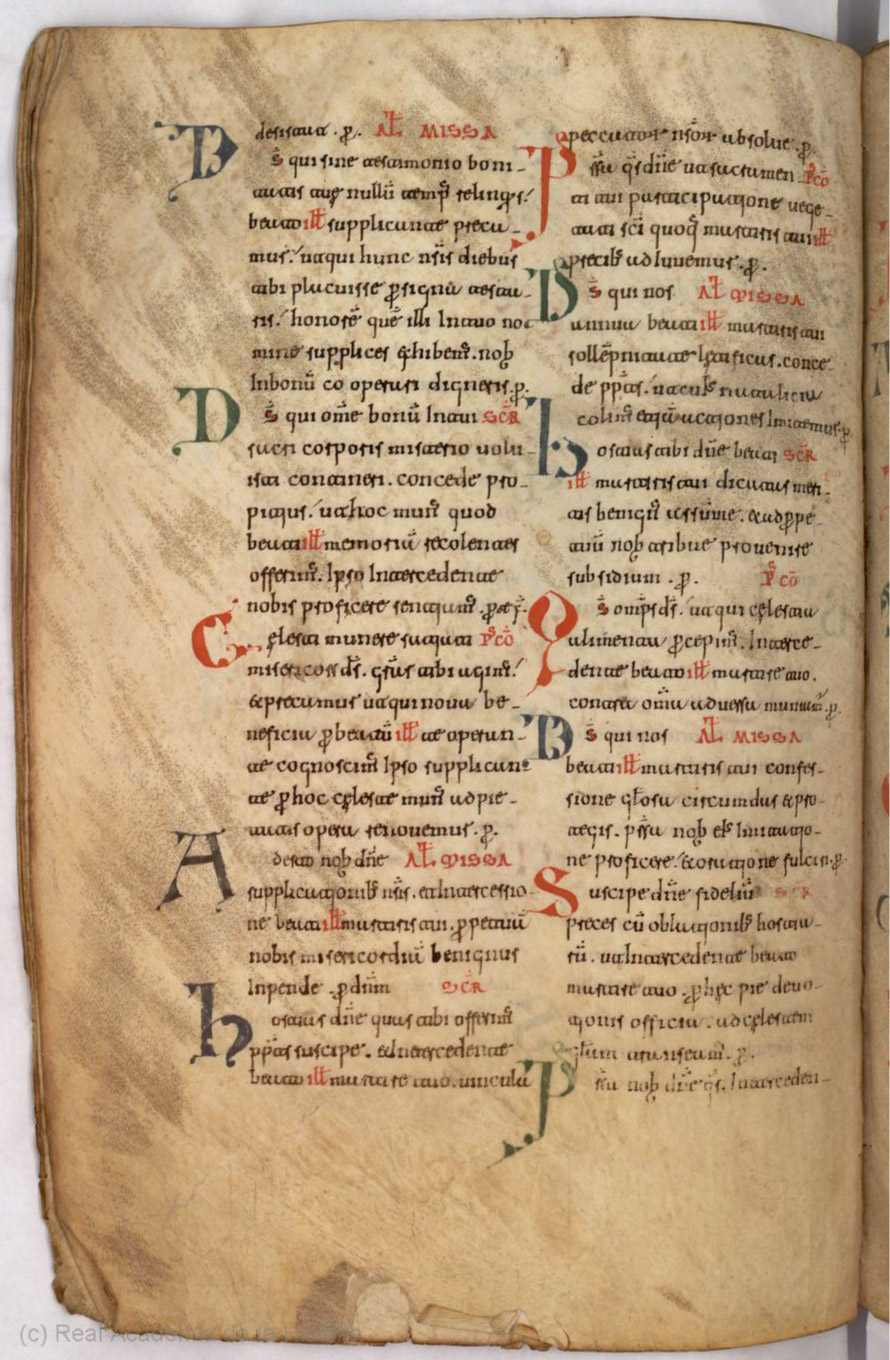 AL MISSA
Ds̄ qui sine testimonio boni-
tatis tue nullū temp̄ relinqis:
beato ill̄ supplicante precu-
mus: ut qui hunc nsīs diebus
tibi placuisse ꝑ signū testa-
ris: honorē quē illi Intuo no-
mine supplices exhibem̄. nob
Inbonū cooperari digneris.ꝑ.
Ds̄ qui om̄e bonū Intui SCR̄
sacri corporis misterio uolu-
isti contineri. concede pro-
pitius: ut hoc mun̄ quod
beati ill̄ memoriā recolentes
offerim̄. Ipso Intercedente
nobis proficere sentiam̄.
Cęlesti munere satiati P̄cō
misericors ds̄. grās tibi agim̄:
& precamur ut qui noua be-
neficia ꝑ beatū ill̄ te operan-
te cognoscim̄ Ipso supplican-
te ꝑ hoc cęleste mun̄ ad pie-
tatis opera renouemur. ꝑ.
Adesto nob dn̄e AL MISSA
supplicationib nsīs. et Intercessio-
ne beati ill̄ martiris tui. ꝑpetuā
nobis misericordiā benignus
Inpende. ꝑ dn̄m SCR̄
hostias dn̄e quas tibi offerim̄
pp̄itius suscipe. et Intercedente
beato ill̄ martire tuo. uincula
peccator nsōr absolue.ꝑ.
Prs̄ta qs̄ dn̄e ut sacramen- P̄cō
ti tui participatione uege-
tati sc̄i quoq martiris tui ill̄
precib adiuuemur.ꝑ.
Ds̄ qui nos AL MISSA
annua beati ill̄ martiris tui
sollēpnitate lętificas. conce-
de pp̄itius. ut cuius natalicia
colim̄ etiā actiones Imitemur.ꝑ.
hostias tibi dn̄e beati SCR̄
ill̄ martiris tui dicatas meri-
tis benign̄ assūme. & ad ꝑpe-
tuū nob tribue prouenire
subsidium .ꝑ. P̄ cō
Qs̄ omp̄s ds̄. ut qui cęlestia
alimenta ꝑcepim̄. Interce-
dente beato ill̄ martire tuo.
contra om̄ia aduersa muniam̄.ꝑ.
Ds̄ qui nos AL MISSA
beati ill̄ martiris tui confes-
sione glōsa circumdas & pro-
tegis. prs̄ta nob eīs Imitatio-
ne proficere. & oratione fulciri.ꝑ.
Suscipe dn̄e fideliū SCR̄
preces cū oblationib hostia-
rū. ut Intercedente beato
martire tuo. ꝑ hęc pie deuo-
tionis officia. ad cęlestem
glām transeam̄. ꝑ.
Prs̄ta nob dn̄e qs̄. Interceden-